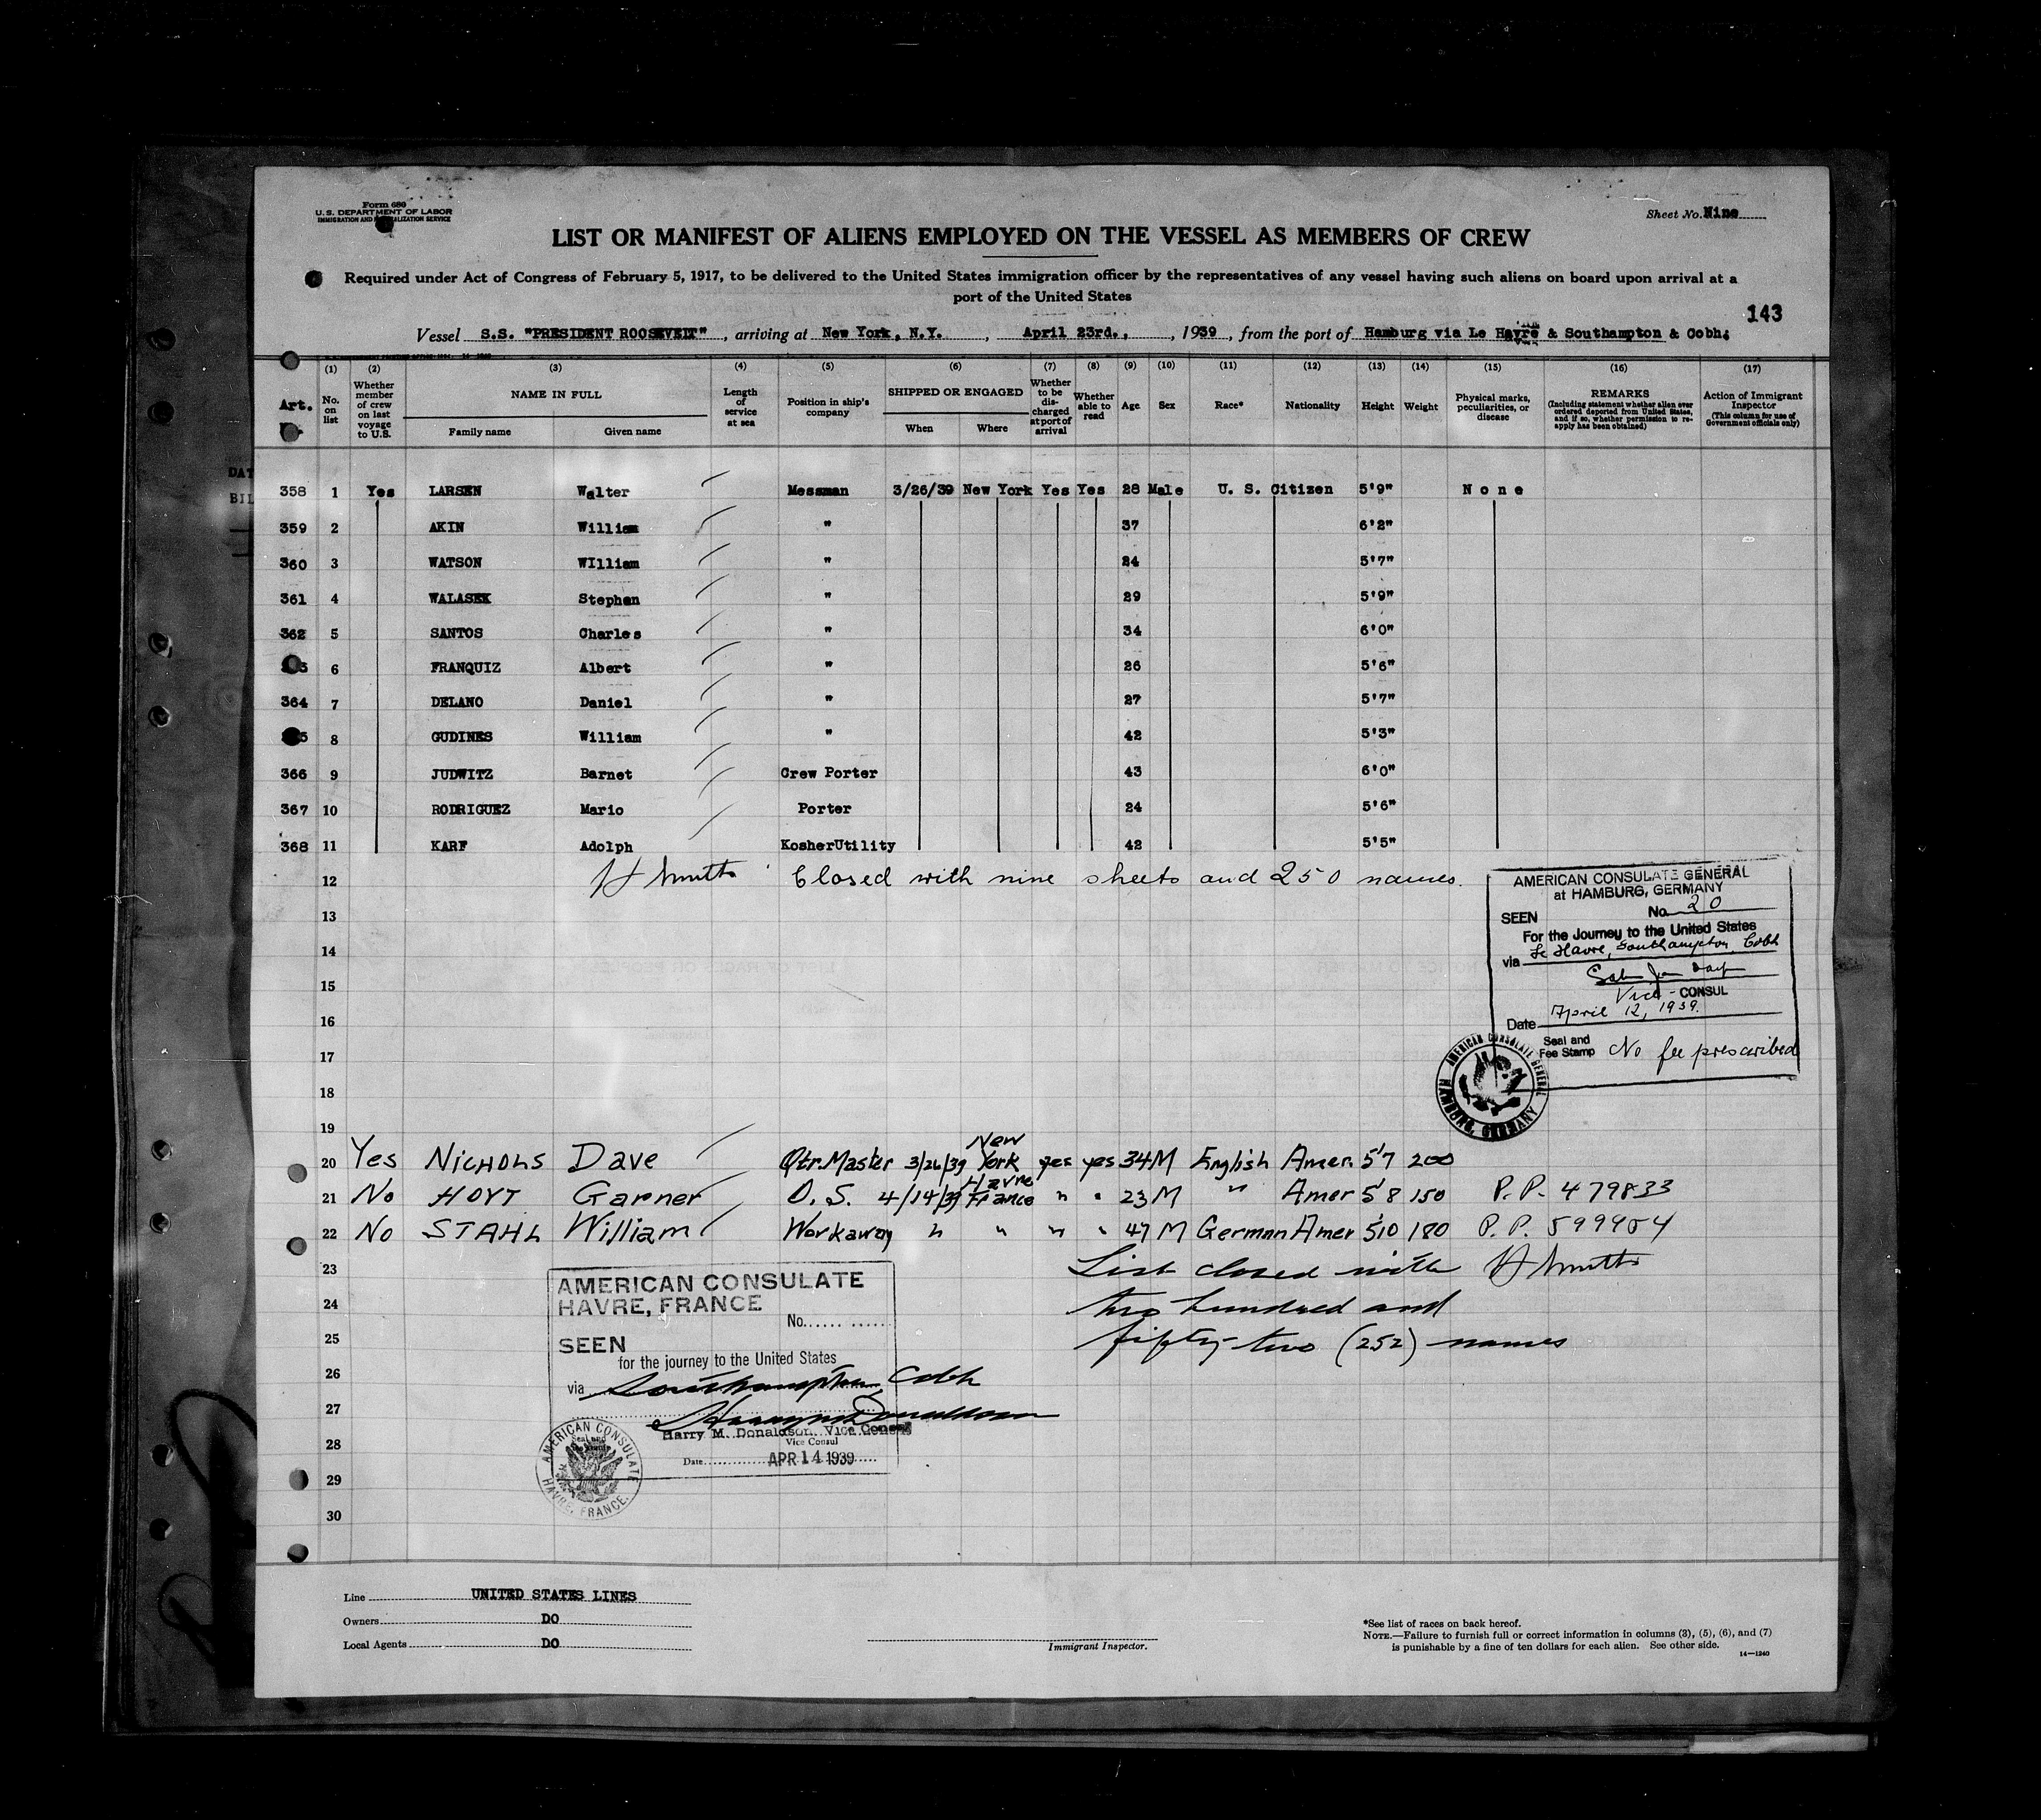 Form 680
U.S. DEPARTMENT OF LABOR
IMMIGRATION AND NATURALIZATION SERVICE
Sheet No. Nine
LIST OR MANIFEST OF ALIENS EMPLOYED ON THE VESSEL AS MEMBERS OF CREW
Required under Act of Congress of February 5, 1917, to be delivered to the United States immigration officer by the representatives of any vessel having such aliens on board upon arrival at a
port of the United States
143
Vessel S.S. "PRESIDENT ROOSEVELT", arriving at New York, N.Y., April 23rd., 1939, from the port of Hamburg via Le Havre & Southampton & Cobh.
(1) (2) (3) (4) (5) (6) (7) (8) (9) (10) (11) (12) (13) (14) (15) (16) (17)
Art. No. on list
Whether member of crew on last voyage to U.S.
NAME IN FULL
Family name Given name
Length of service at sea
Position in ship's company
SHIPPED OR ENGAGED
When Where
Whether to be discharged at port of arrival
Whether able to read
Age Sex Race* Nationality Height Weight
Physical marks, peculiarities, or disease
REMARKS
(Including statement whether alien ever ordered deported from United States, and if so, whether permission to reapply has been obtained)
Action of Immigrant Inspector
(This column for use of Government officials only)
DAT
BIL
358 1 Yes LARSEN Walter Messman 3/26/39 New York Yes Yes 28 Male U. S. Citizen 5'9" None
359 2 AKIN William " 37 6'2"
360 3 WATSON WIlliam " 24 5'7"
361 4 WALASEK Stephen " 29 5'9"
362 5 SANTOS Charles " 34 6'0"
6 FRANQUIZ Albert " 26 5'6"
364 7 DELANO Daniel " 27 5'7"
8 GUDINES William " 42 5'3"
366 9 JUDWITZ Barnet Crew Porter 43 6'0"
367 10 RODRIGUEZ Mario Porter 24 5'6"
368 11 KARF Adolph KosherUtility 42 5'5"
12 Closed with nine sheets and 250 names.
AMERICAN CONSULATE GENERAL
at HAMBURG, GERMANY
SEEN No. 20
For the Journey to the United States
via Le Havre, Southampton, Cobh
Vice-CONSUL
Date April 12, 1939.
Seal and Fee Stamp No fee prescribed
AMERICAN CONSULATE GENERAL HAMBURG, GERMANY
13
14
15
16
17
18
19
20 Yes NICHOLS Dave Qtr.Master 3/26/39 New York yes yes 34 M English Amer. 5'7 200
21 No HOYT Garner O.S. 4/14/39 Havre France " " 23 M " Amer 5'8 150 P.P. 479833
22 No STAHL William Workaway " " " " 47 M German Amer 5'10 180 P.P. 599904
23 List closed with
24 two hundred and
25 fifty-two (252) names
26
27
28
29
30
AMERICAN CONSULATE
HAVRE, FRANCE
No.
SEEN
for the journey to the United States
via Southampton, Cobh
Harry M. Donaldson
Harry M. Donaldson, Vice Consul
Vice Consul
Date APR 14 1939
AMERICAN CONSULATE HAVRE, FRANCE.
Line UNITED STATES LINES
Owners DO
Local Agents DO
Immigrant Inspector.
*See list of races on back hereof.
NOTE.—Failure to furnish full or correct information in columns (3), (5), (6), and (7)
is punishable by a fine of ten dollars for each alien. See other side.
14—1240